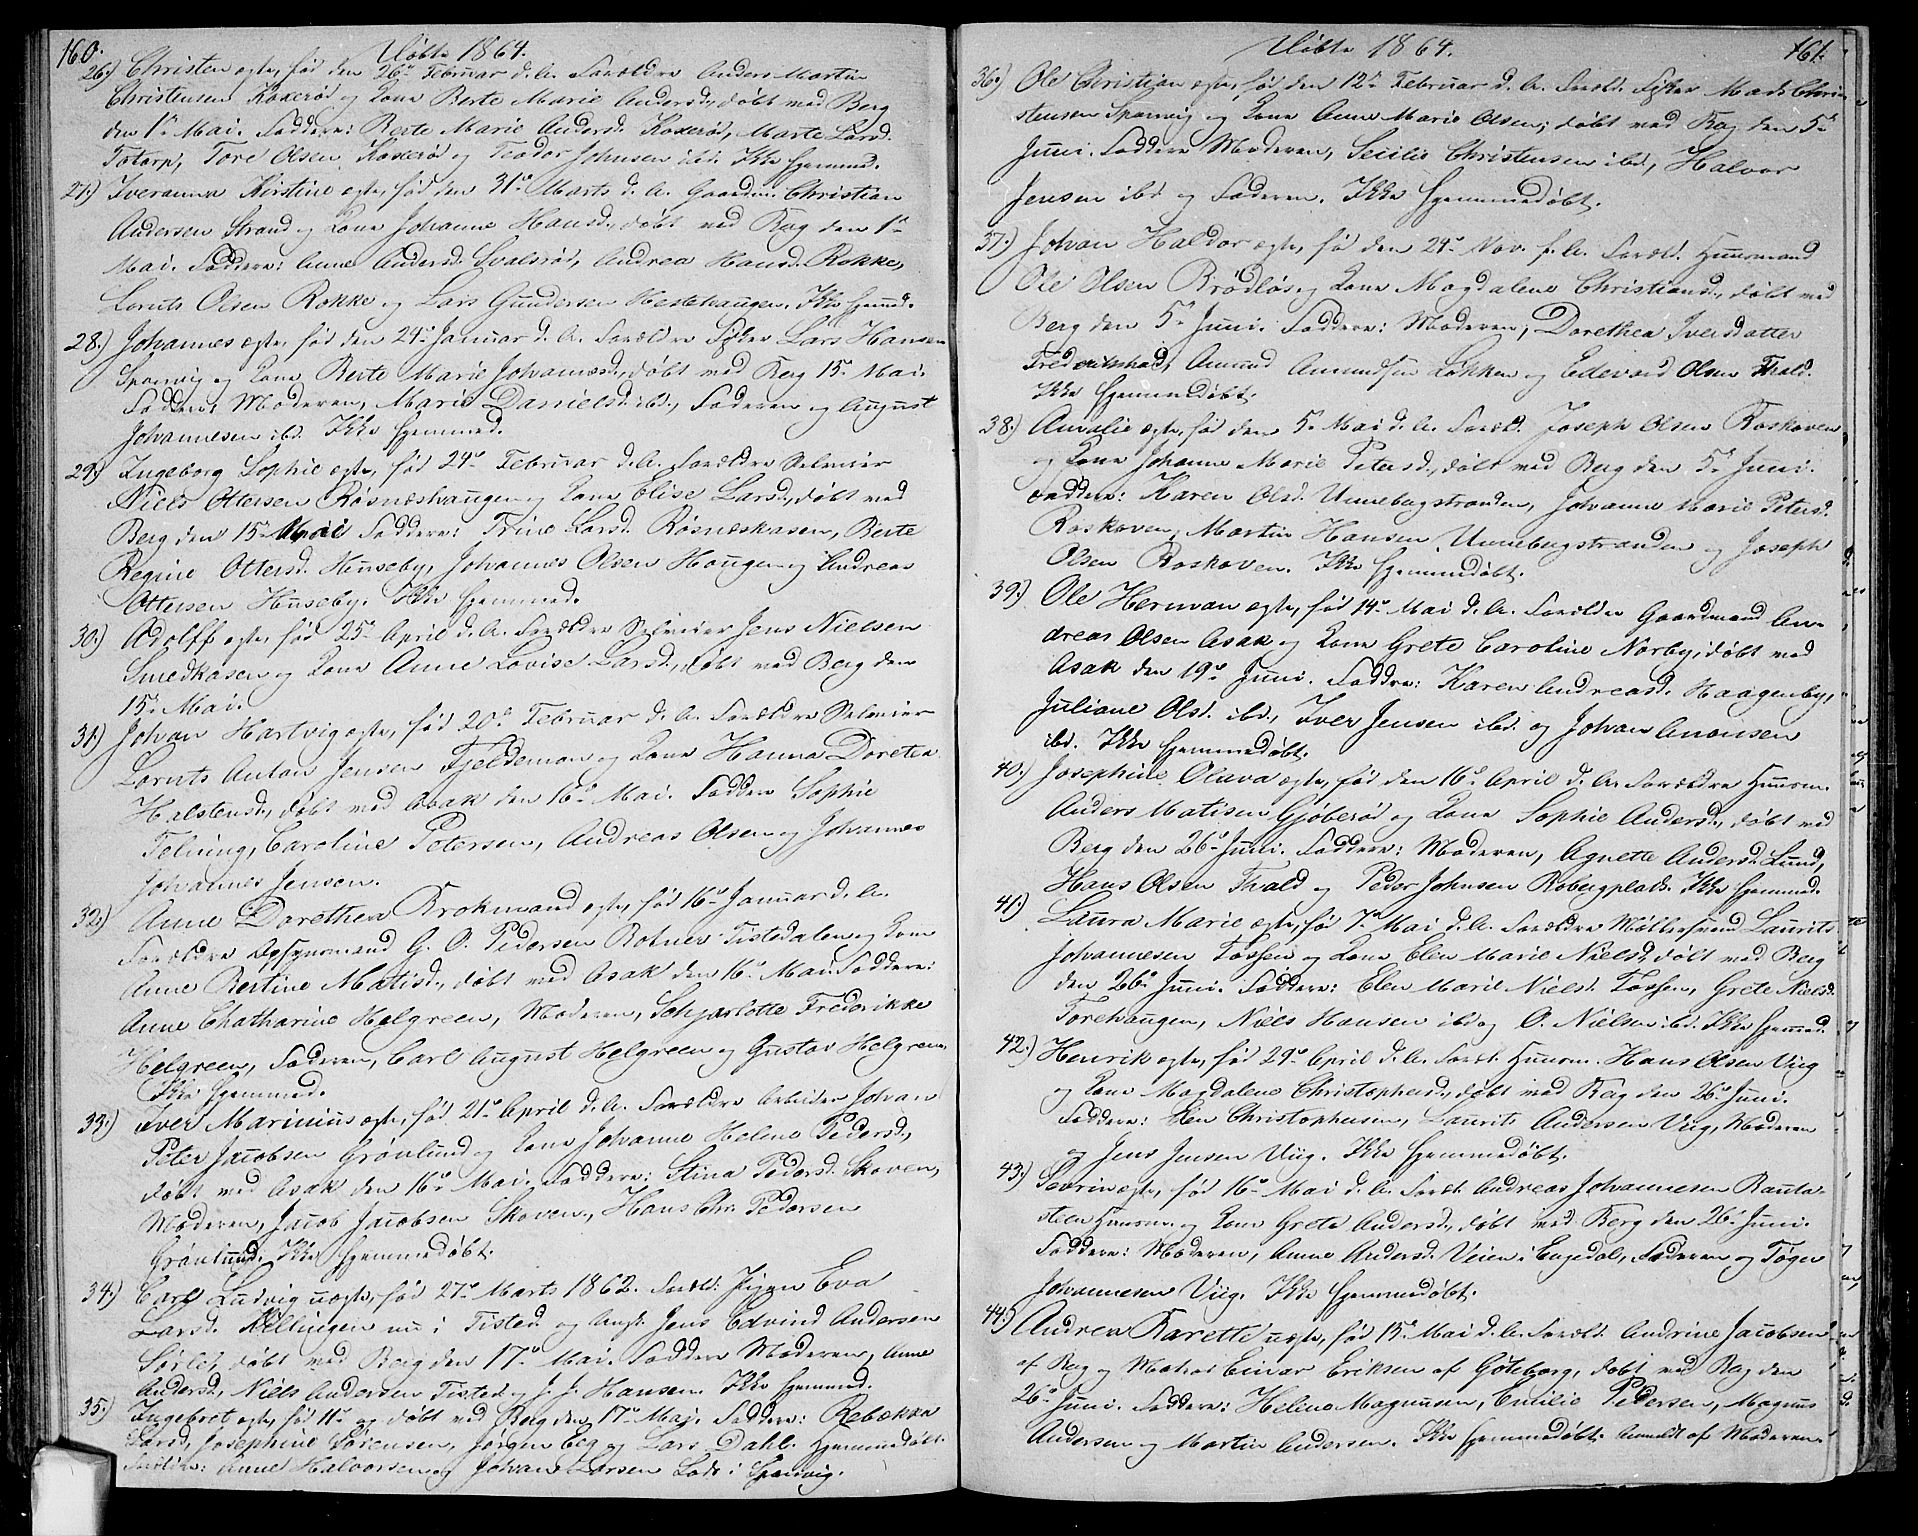 160.
Døbte 1864.
26.) Christen egte, fød den 26de Februar d. A. Forældre Anders Martin
Christensen Koxerød og Kone Berte Marie Andersd., døbt ved Berg
den 1te Mai. Faddere: Berte Marie Andersd. Koxerød, Marte Larsd.
Totorp, Tore Olsen Koxerød og Teodor Johnsen ibd. Ikke hjemmed.
27.) Iveranna Kirstine egte, fød den 31te Marts d. A. Gaardm. Christian
Andersen Strand og Kone Johanne Hansd., døbt ved Berg den 1te
Mai. Faddere: Anne Andersd. Svalerød, Andrea Hansd. Rokke,
Lorents Olsen Rokke og Lars Gundersen Hestehaugen. Ikke hjemmd.
28.) Johannes egte, fød den 24de Januar d. A. Forældre Lars Hansen
Sponvig og Kone Berte Marie Johannesd., døbt ved Berg 15de Mai.
Faddere: Moderen, Marie Danielsd. ibd., Faderen og August
Johannesen ibd. Ikke hjemmed.
29.) Ingeborg Sophie egte, fød 24de Februar d. A. Forældre Selveier
Niels Ottersen Røsnæshaugen og Kone Elise Larsd., døbt ved
Berg den 15de Mai Faddere: Trine Larsd. Røsneskasen, Berte
Regine Ottersd. Huseby, Johannes Olsen Haugen og Andreas
Ottersen Huseby. Ikke hjemmed.
30.) Adolff egte, fød 25de April d. A. Forældre Selveier Jens Nielsen
Smedkasen og Kone Anne Lovise Larsd., døbt ved Berg den
15de Mai.
31.) Johan Hartvig egte, fød 20de Februar d. A. Forældre Selveier
Lorents Anton Jensen Fjeldemon og Kone Hanna Doretea
Halstensd., døbt ved Asak den 16de Mai. Faddere Sophie
Caroline Petersen, Andreas Olsen og Johannes
Johannes Jensen.
32.) Anne Dorethea Brokmand egte, fød 16de Januar d. A.
Forældre G. O. Pedersen Rohner Tistedalen og Kone
Anne Bertine Matisd., døbt ved Asak den 16de Mai. Faddere:
Anne Chatharine Helgreen, Moderen, Schjarlotte Frederikke
Helgreen, Faderen, Carl August Helgreen og Gustav Helgreen.
Ikke hjemmed.
33.) Iver Marinius egte, fød 21de April d. A. Forældre Arbeider Johan
Peter Jacobsen Grønlund og Kone Johanne Helene Pedersd.,
døbt ved Asak den 16de Mai. Faddere: Stina Pedersd. Skoven,
Moderen, Jacob Jacobsen Skoven, Hans Chr. Pedersen
Grønlund. Ikke hjemmedøbt.
34.) Carl Ludvig uegte, fød 27de Marts 1862. Foræld: Pigen Eva
Larsd. Killingen nu i Tisted og Ungk. Jens Edvind Andersen
Sørlei, døbt ved Berg den 17de Mai. Faddere Moderen, Anne
Andersd., Niels Andersen Tisted og J. J. Hansen. Ikke hjemmed.
35.) Ingebret egte, fød 11te og døbt ved Berg den 17de Mai. Faddere: Rebækka
Larsd., Josephine Sørensen, Jørgen Eeg og Lars Dahl. Hjemmedøbt.
Forældre: Anne Halvorsen og Johan Larsen Lods i Sponvig.
Døbte 1864.
161.
36.) Ole Christian egte, fød den 12te Februar d. A. Foræld. Mads Chri-
stensen Sponvig og Kone Anne Marie Olsen, døbt ved Berg den 5te
Juni. Faddere Moderen, Secilie Christensen ibd., Halvor
Jensen ibd og Faderen. Ikke hjemmedøbt.
37.) Johan Haldor egte, fød den 24de Nov. f. A. Foræld. Huusmand
Ole Olsen Brødløs og Kone Magdalene Christiansd., døbt ved
Berg den 5te Juni. Faddere: Moderen, Dorethea Iversdatter
Fredrikshald, Amund Amundsen Løkken og Edevard Olsen Fhald.
Ikke hjemmedøbt.
38.) Amalie egte, fød den 5te Mai d. A. Foræld. Joseph Olsen Roskoven
og Kone Johanne Marie Petersd., døbt ved Berg den 5te Juni.
Faddere: Karen Olsd. Unnebugstranden, Johanne Marie Petersd.
Roskoven, Martin Hansen Unnebugstranden og Joseph
Olsen Roskoven. Ikke hjemmedøbt.
39.) Ole Herman egte, fød 14de Mai d. A. Forældre Gaardmand An-
dreas Olsen Asak og Kone Grete Caroline Norby, døbt ved
Asak den 19de Juni. Faddere: Karen Andreasd. Haagenby,
Juliane Olsd. ibd., Iver Jensen ibd. og Johan Anonsen
ibd. Ikke hjemmedøbt.
40.) Josephine Olava egte, fød den 16de April d. A. Forældre Huusm.
Anders Matisen Gjøberød og Kone Sophie Andersd., døbt ved
Berg den 26de Juni. Faddere: Moderen, Agnette Andersd. Lund,
Hans Olsen Fhald og Peder Johnsen Robergplads. Ikke hjemmed.
41.) Laura Marie egte, fød 7de Mai d. A. Forældre Møllesvend Laurits
Johannesen Fossen og Kone Elen Marie Nielsd, døbt ved Berg
den 26de Juni. Faddere: Elen Marie Nielsd. Fossen, Grete Nielsd.
Torehaugen, Niels Hansen ibd og O. Nielsen ibd. Ikke hjemmed.
42.) Henrik egte, fød 29de April d. A. Foræld. Huusm. Hans Olsen Viig
og Kone Magdalene Christophersd., døbt ved Berg den 26de Juni.
Faddere: Elen Christophersen, Laurits Andersen Viig, Moderen
og Jens Jensen Viig. Ikke hjemmedøbt.
43.) Severin egte, fød 16de Mai d. A. Foræld. Andreas Johannesen Rauta-
steen Huusm. og Kone Grete Andersd., døbt ved Berg den 26de Juni.
Faddere: Moderen, Anne Andersd. Veien i Engedal, Faderen og Tøger
Johannesen Viig. Ikke hjemmedøbt.
44.) Andrea Karette uegte, fød 15de Mai d. A. Foræld. Andrine Jacobsen
af Berg og Matros Einar Eriksen af Göteborg, døbt ved Berg den
26de Juni. Faddere: Helene Magnusen, Emilie Pedersen, Magnus
Andersen og Martin Andersen. Ikke hjemmedøbt. Anmeldt af Moderen.